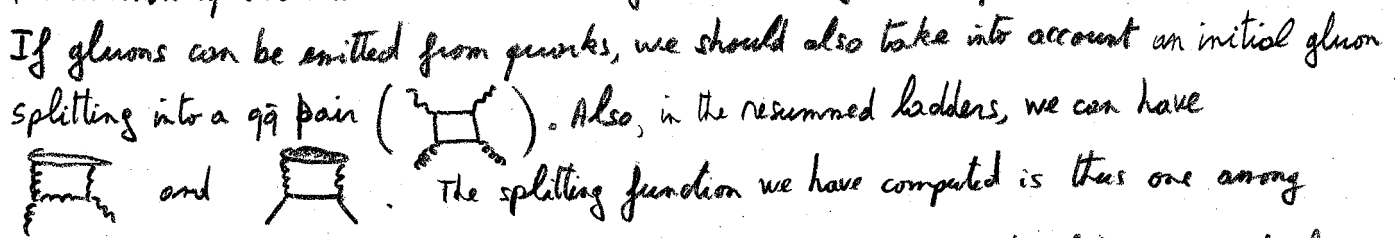 If gluons can be emitted from quarks, we should also take into account an initial gluon
splitting into a qq̄ pair ( ). Also, in the resummed ladders, we can have
and . The splitting function we have computed is thus one among